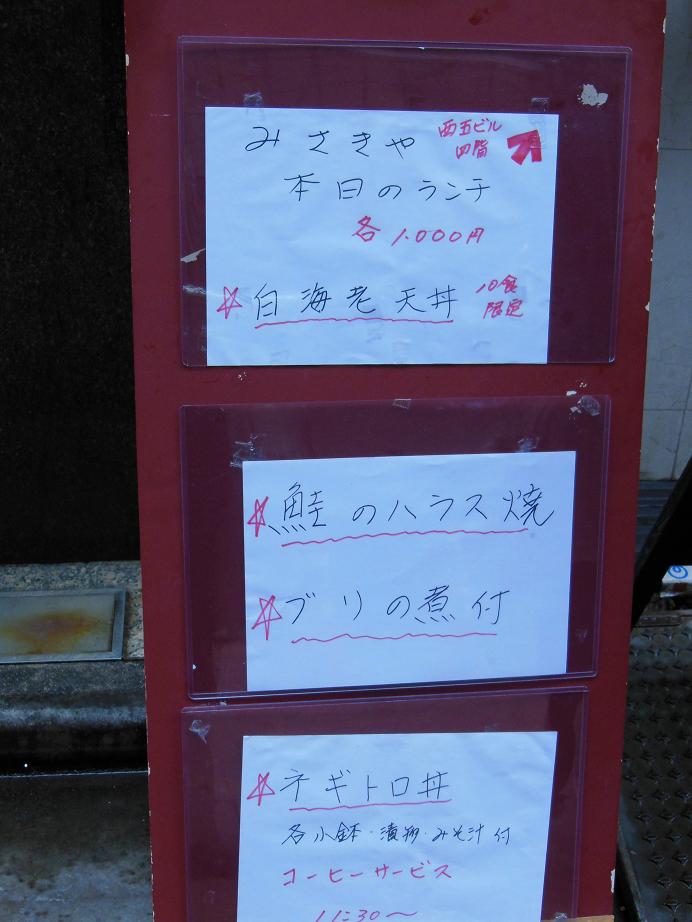 みさきや 西五ビル
四階
本日のランチ
各 1.000円
☆ 白海老天丼 10食
限定
☆ 鮭のハラス焼
☆ ブリの煮付
☆ ネギトロ丼
各小鉢・漬物・みそ汁付
コーヒーサービス
11:30〜